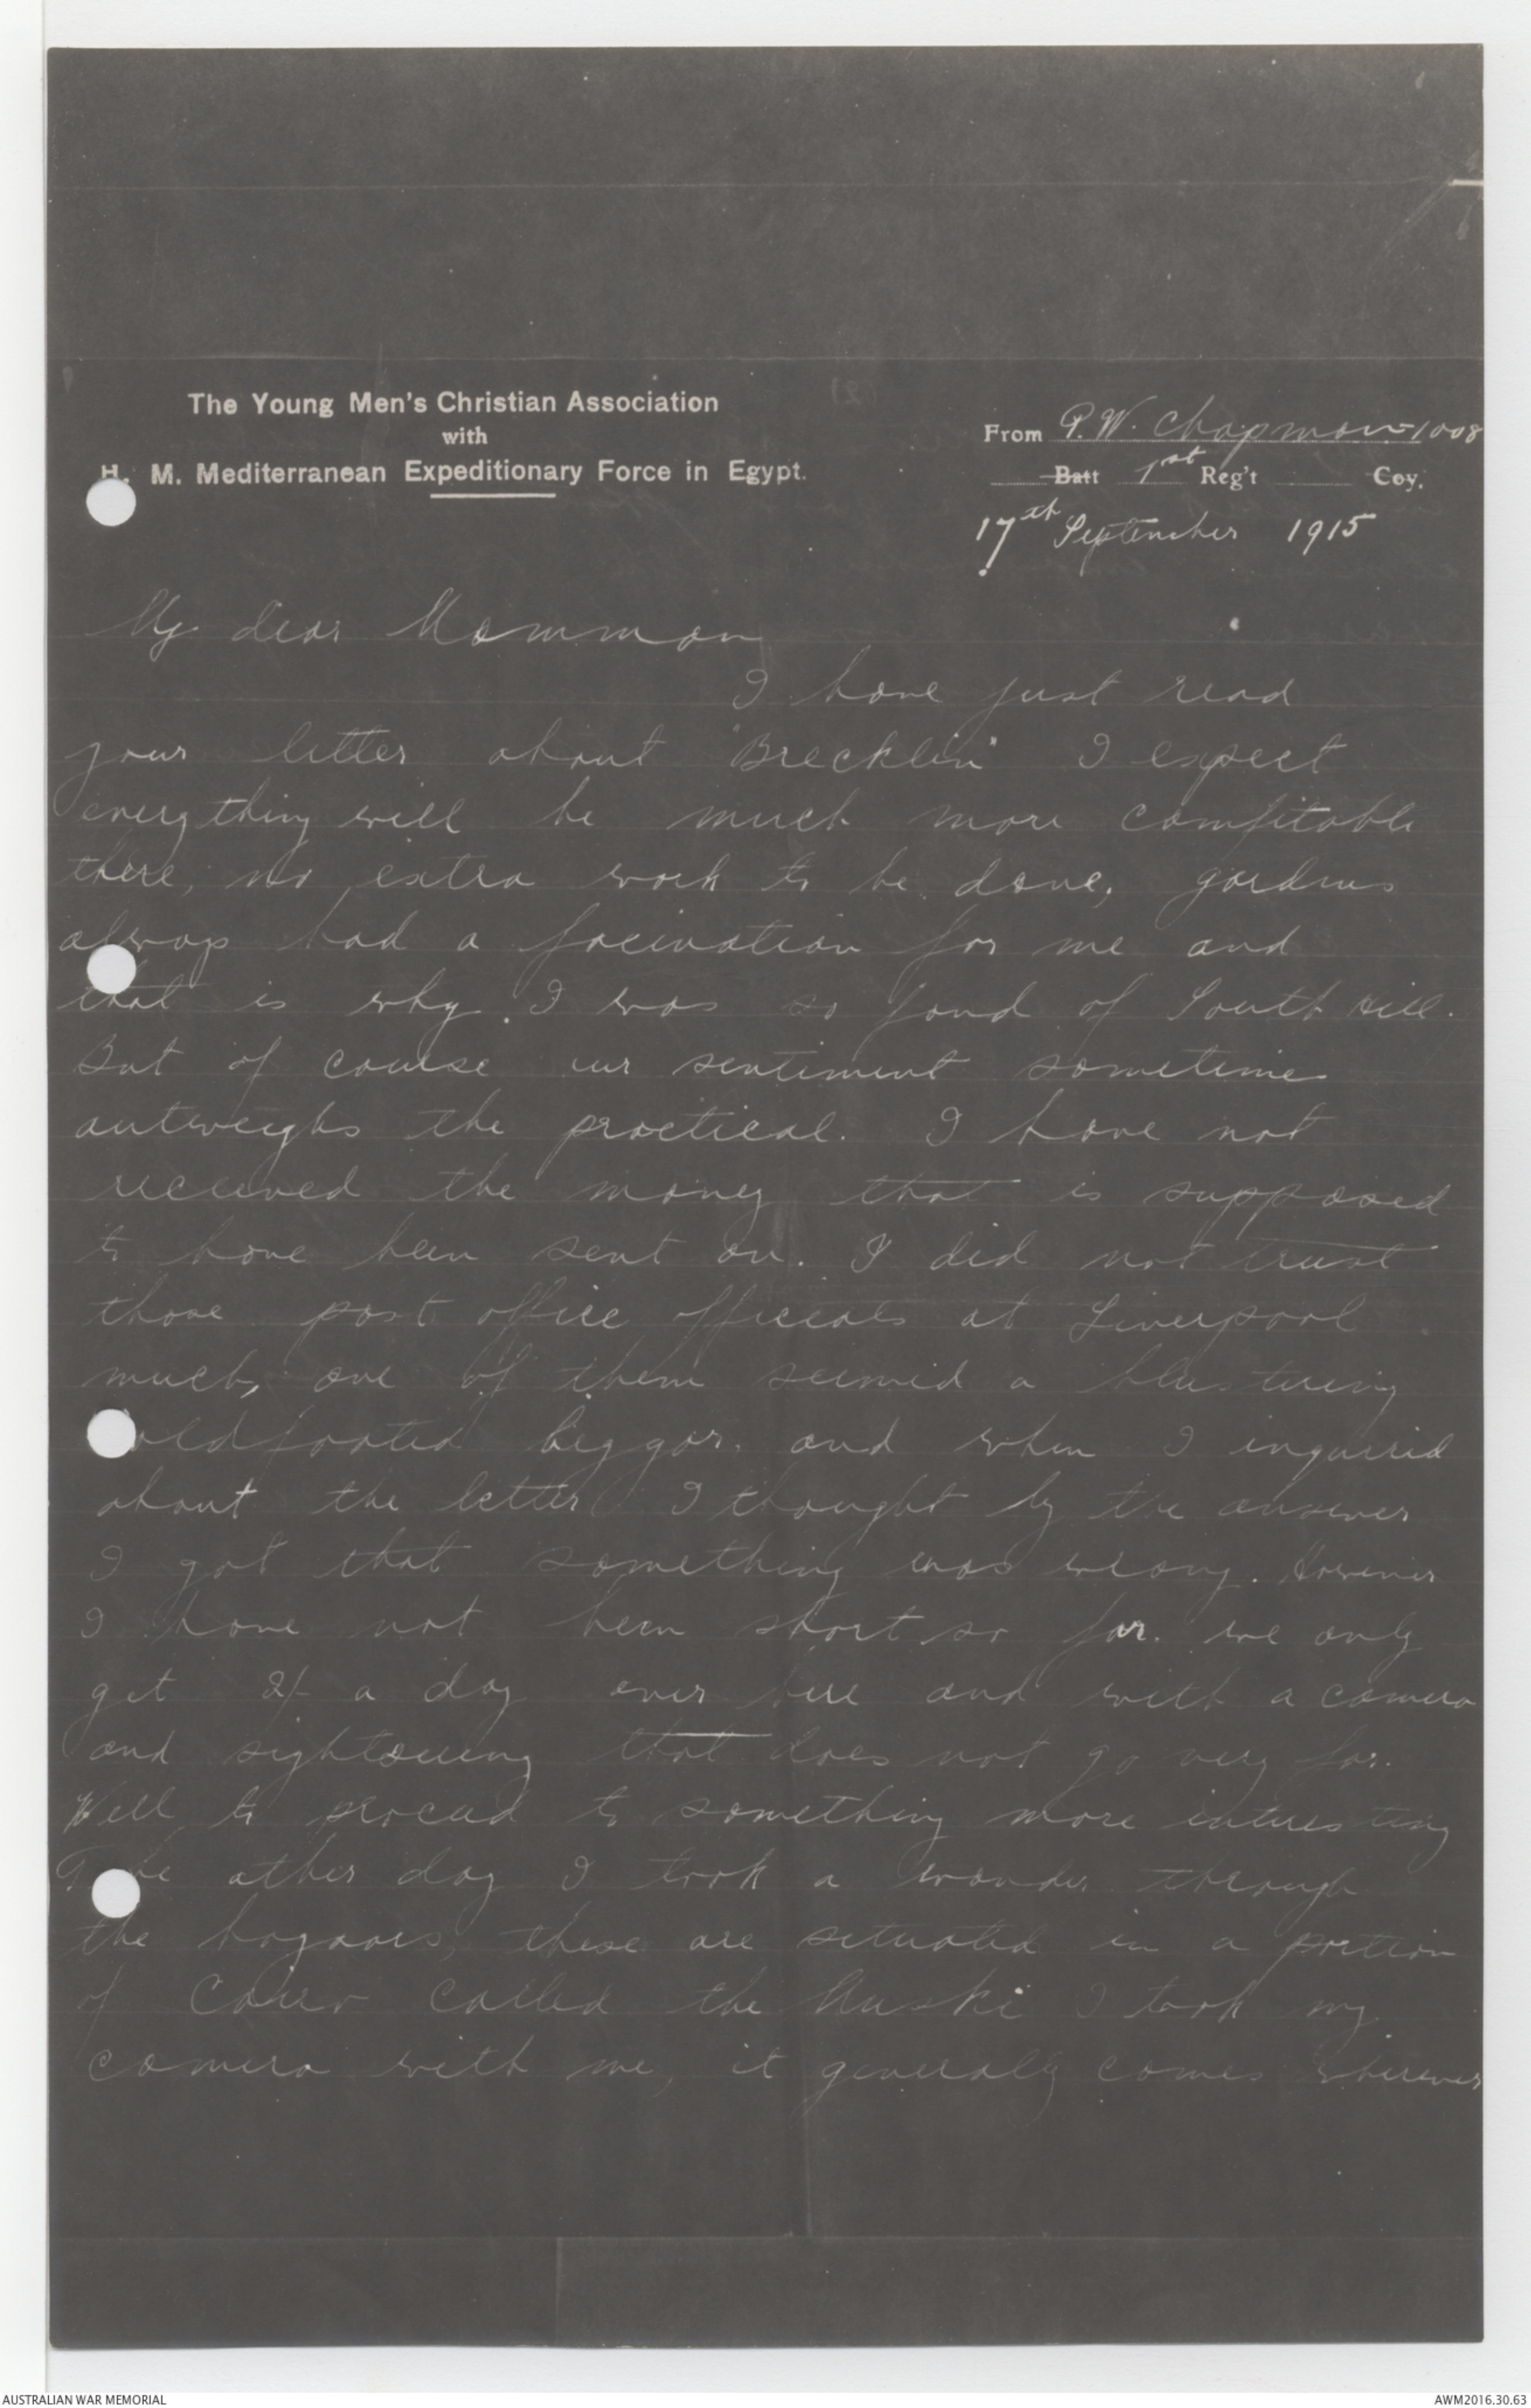 The Young Men's Christian Association
with
H. M. Mediterranean Expeditionary Force in Egypt.
From P. W. Chapman - 1008
Batt 1st Reg't Coy.
17th September 1915
My dear Mamman
I have just read
your letter about "Brecklin" I expect
everything will be much more comfitable
there, no extra work to be done, gardens
always had a facination for me and
that is why I was so fond of South Hill.
But of course our sentiment sometime
outweighs the practical. I have not
received the money that is supposed
to have been sent on. I did not trust
those post office officials at Liverpool
much, one of them seemed a blustering
coldfooted beggar. and when I inquired
about the letter I thought by the answer
I got that something was wrong. However
I have not been short so far. we only
get 2/- a day over here and with a camera
and sightseeing that does not go very far.
Well to procced to something more interesting
The other day I took a wander through
the bazaars, these are situated in a portion
of Cairo called the Muski I took my
camera with me, it generally comes wherever
AUSTRALIAN WAR MEMORIAL
AWM2016.30.63